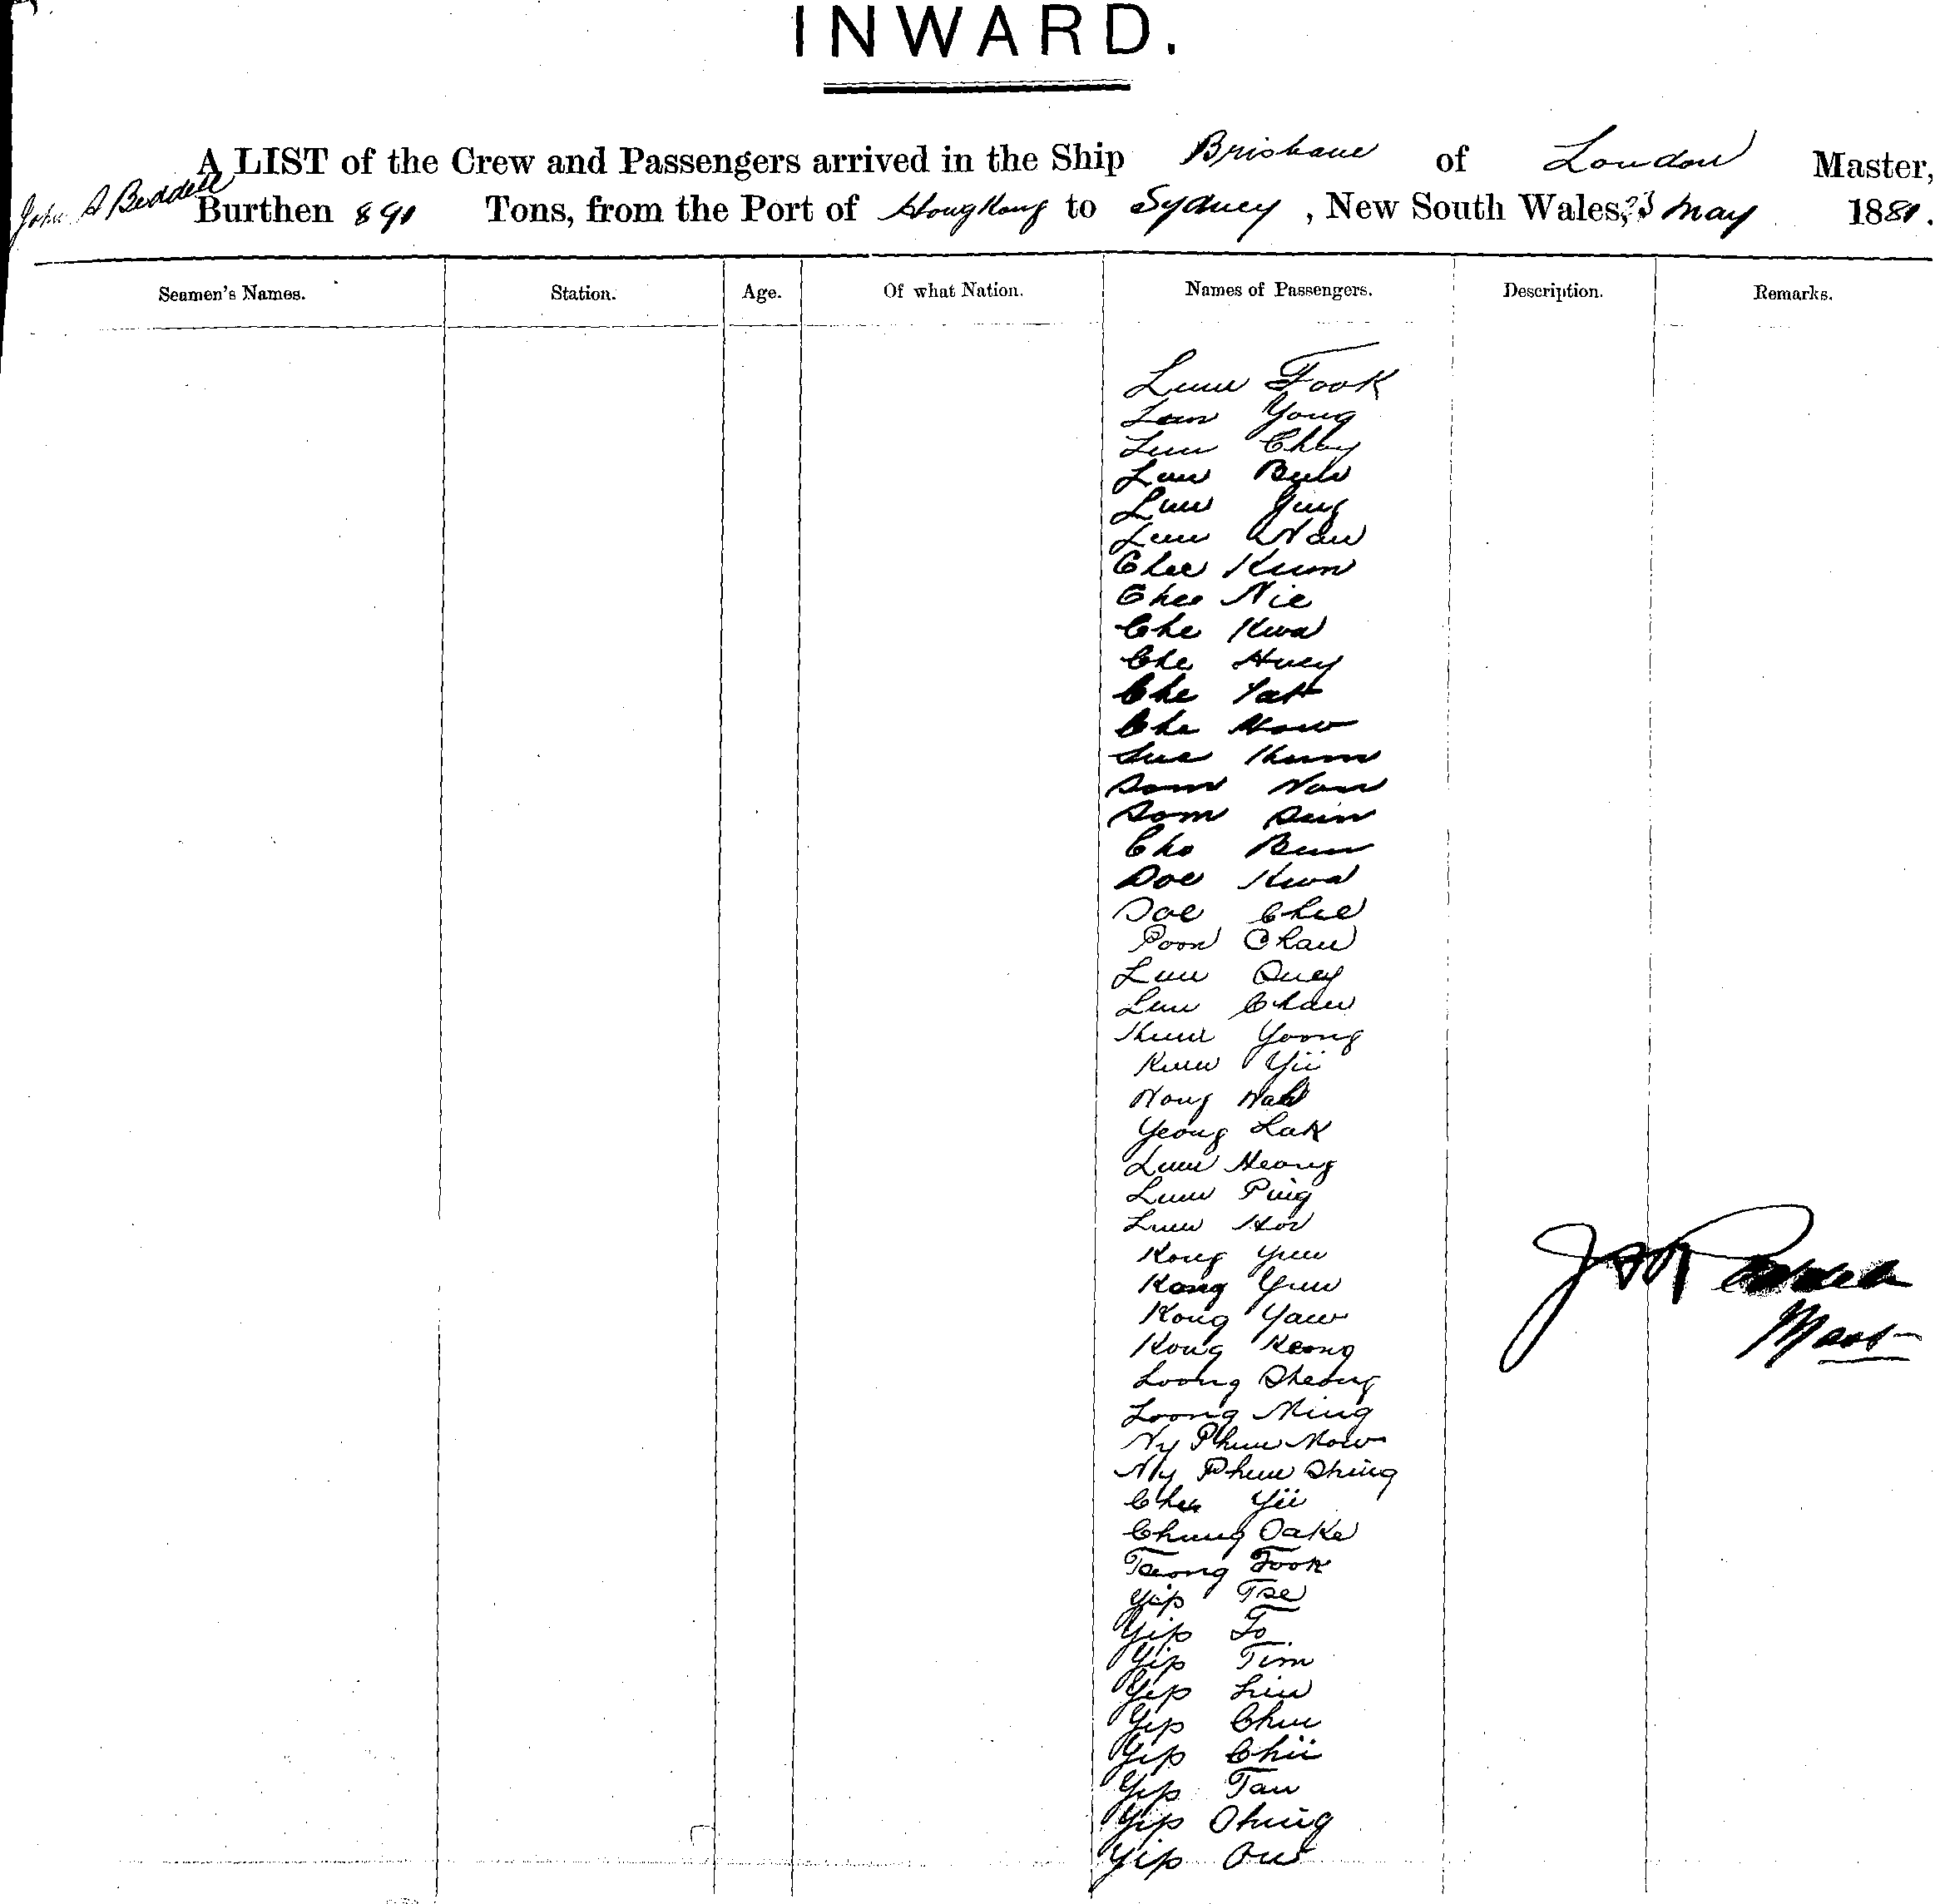 INWARD.
A LIST of the Crew and Passengers arrived in the Ship Brisbane of London Master,
John A Beddell Burthen 891 Tons, from the Port of Hong Kong to Sydney, New South Wales, 23 May 1881.
Seamen's Names. Station. Age. Of what Nation. Names of Passengers. Description. Remarks.
Lum Fook
Lum Yong
Lum Choy
Lum
Lum
Lum
Chee Kum
Chee Nie
Che Kwa
Che Huey
Che Yat
Che How
Sue Kum
Som Non
Som Sun
Cho Bun
Doe Kwa
Doe Chee
Poon Chan
Lum Quey
Lum Chan
Yoong
Kum Yii
Wong Wah
Yeong Lak
Lum Heong
Lum Ping
Lum Hoi
Kong Yum
Kong Yun
Kong Yaw
Kong Keong
Loong Sheong
Loong Ming
Ny Phun Mow
Ny Phun Shing
Chee Yii
Chung Oake
Tseong Fook
Yip Tse
Yip To
Yip Tim
Yip Lin
Yip Chu
Yip Chii
Yip Tan
Yip Ohing
Yip On
J A Beddell
Mast